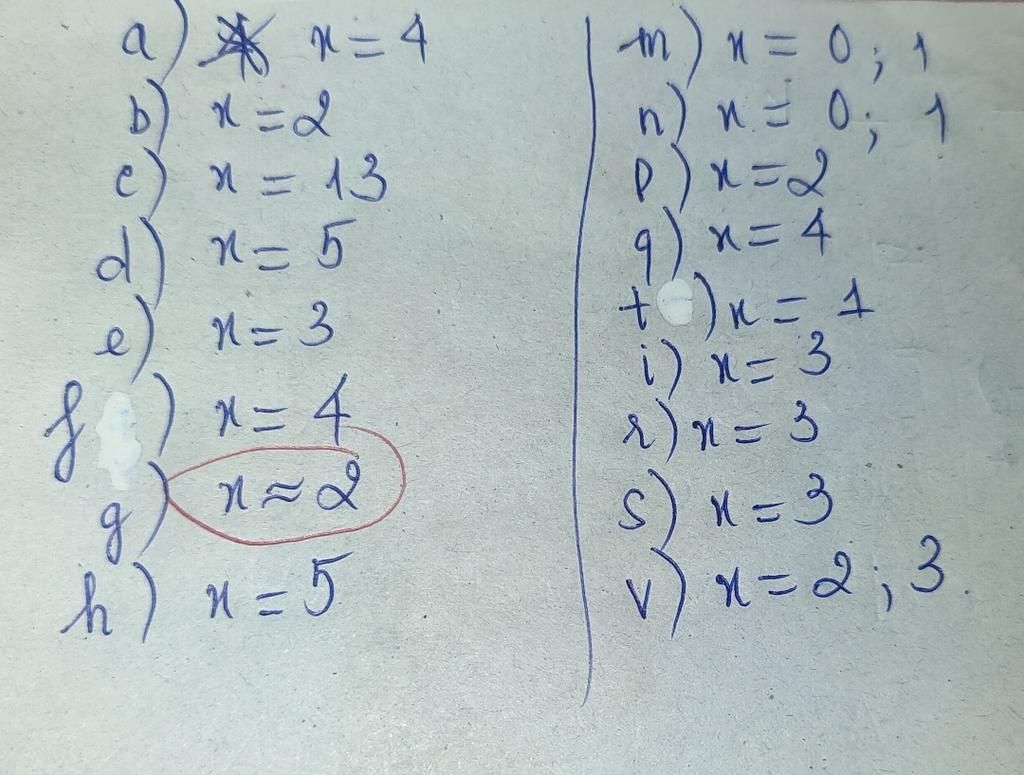 a) x = 4
b) x = 2
c) x = 13
d) x = 5
e) x = 3
f ) x = 4
g) x ≈ 2
h) x = 5
m) x = 0; 1
n) x = 0; 1
p) x = 2
q) x = 4
t ) x = 1
i) x = 3
r) x = 3
s) x = 3
v) x = 2; 3.